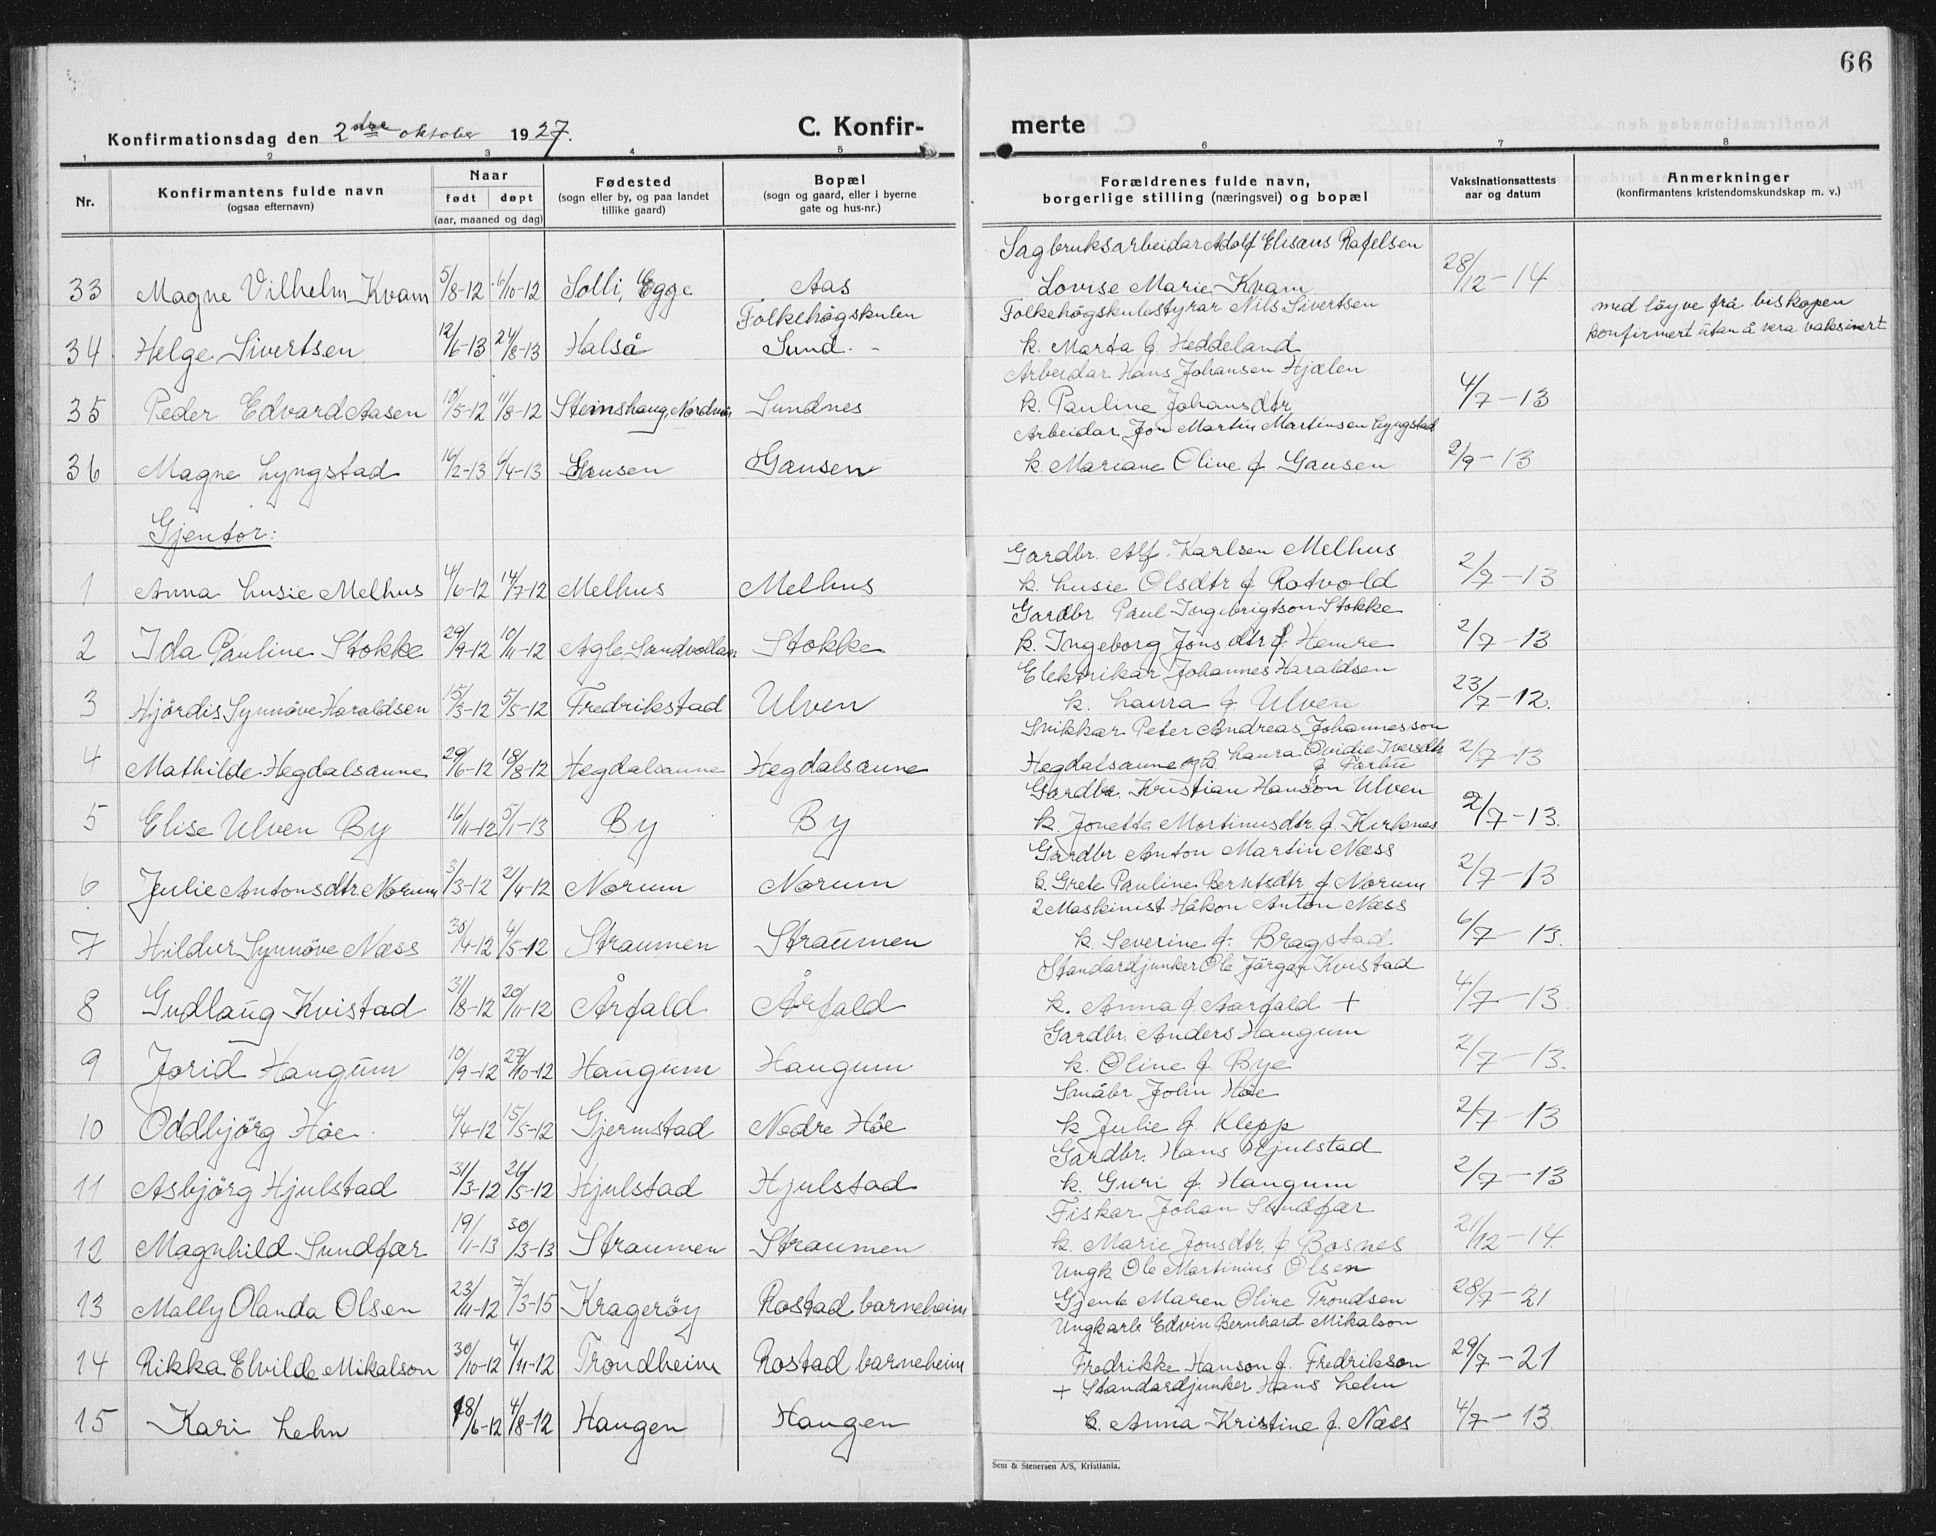 66
Konfirmationsdag den 2dre oktober 1927. C. Konfir- merte
1 2 3 4 5 6 7 8
Nr. Konfirmantens fulde navn (ogsaa efternavn) Naar født døpt (aar, maaned og dag) Fødested (sogn eller by, og paa landet tillike gaard) Bopæl (sogn og gaard, eller i byerne gate og hus-nr.) Forældrenes fulde navn, borgerlige stilling (næringsvei) og bopæl Vaksinationsattests aar og datum Anmerkninger (konfirmantens kristendomskundskap m. v.)
Sagbruksarbeidar Adolf Elisæus Rafelsen
33 Magne Vilhelm Kvam 5/8-12 6/10-12 Solli, Egge Aas Lovise Marie Kvam 28/12-14
Folkehøgskulen Folkehögskulestyrar Nils Sivertsen med löyve frå biskopen
34 Helge Sivertsen 12/6-13 24/8-13 Halså Sund. k. Marta f. Heddeland konfirmert utan å vera vaksinert
Arbeidar Hans Johansen Hjælen
35 Peder Edvard Aasen 19/5-12 11/8-12 Steinshaug, Sundnes k. Pauline Johansdtr 4/7-13
Arbeidar Jon Martin Martinsen Lyngstad
36 Magne Lyngstad 16/2-13 6/4-13 Gausen Gausen k. Mariane Oline f. Gausen 2/9-13
Gjentor:
Gardbr. Alf Karlsen Melhus
1 Anna Lusie Melhus 4/6-12 14/7-12 Melhus Melhus k. Lusie Olsdtr f. Rotvold 2/7-13
Gardbr Paul Ingebrigtson Stokke
2 Ida Pauline Stokke 29/9-12 10/11-12 Agle, Sandvollan Stokke k. Ingeborg Jonsdtr f. Hemre 2/7-13
Elektrikar Johannes Haraldsen
3 Hjördis Synnöve Haraldsen 15/3-12 5/5-12 Fredrikstad Ulven k. Laura f. Ulven 23/7-12.
Snikkar Peter Andreas Johannesson
4 Mathilde Hegdalsaune 29/6-12 18/8-12 Hegdalsaune Hegdalsaune Hegdalsaune og k. Laura Ovidie Iversdtr f. Farbu 2/7-13
Gardbr. Kristian Hanson Ulven
5 Elise Ulven By 16/11-12 5/1-13 By By k. Jonetta Mortinusdtr. f. Kirknes 2/7-13.
Gardbr Anton Martin Næss
6 Julie Antonsdtr. Norum 3/3-12 2/4-12 Norum Norum k. Grete Pauline Berntsdtr f. Norum 2/7-13
2 Maskinist Håkon Anton Næss
7 Hildur Synnöve Næss 30/4-12 4/5-12 Straumen Straumen k. Severine f. Bragstad. 6/7-13.
Standardjunker Ole Jörgen Kvistad
8 Gudlaug Kvistad 31/8-12 20/11-12 Årfald Årfald k. Anna f. Aarfald + 4/7-13.
Gardbr. Anders Haugum
9 Jorid Haugum 10/9-12 27/10-12 Haugum Haugum k. Oline f. Bye 2/7-13.
Småbr John Höe
10 Oddbjörg Höe 4/4-12 15/5-12 Gjermstad Nedre Höe k Julie f. Klepp 2/7-13
Gardbr. Hans Hjulstad
11 Asbjörg Hjulstad 31/3-12 26/5-12 Hjulstad Hjulstad k. Guri f. Haugum 2/7-13
Fiskar Johan Sundfær
12 Magnhild Sundfær 19/1-13 30/3-13 Straumen Straumen k. Marie Jonsdtr. f. Bosnes 21/12-14.
Ungk. Ole Martinius Olsen
13 Mally Olanda Olsen 23/11-12 7/3-15 Kragerøy Rostad barneheim Gjente Maren Oline Trondsen 28/7-21
Ungkarl Edvin Bernhard Mikalson
14 Rikka Elvilde Mikalson 30/10-12 4/11-12 Trondheim Rostad barneheim Fredrikke Hanson f. Fredrikson 29/7-21
+ Standardjunker Hans Lehn
15 Kari Lehn 18/6-12 4/8-12 Haugen Haugen k. Anna Kristine f. Næss 4/7-13.
Sem & Stenersen A/S, Kristiania.